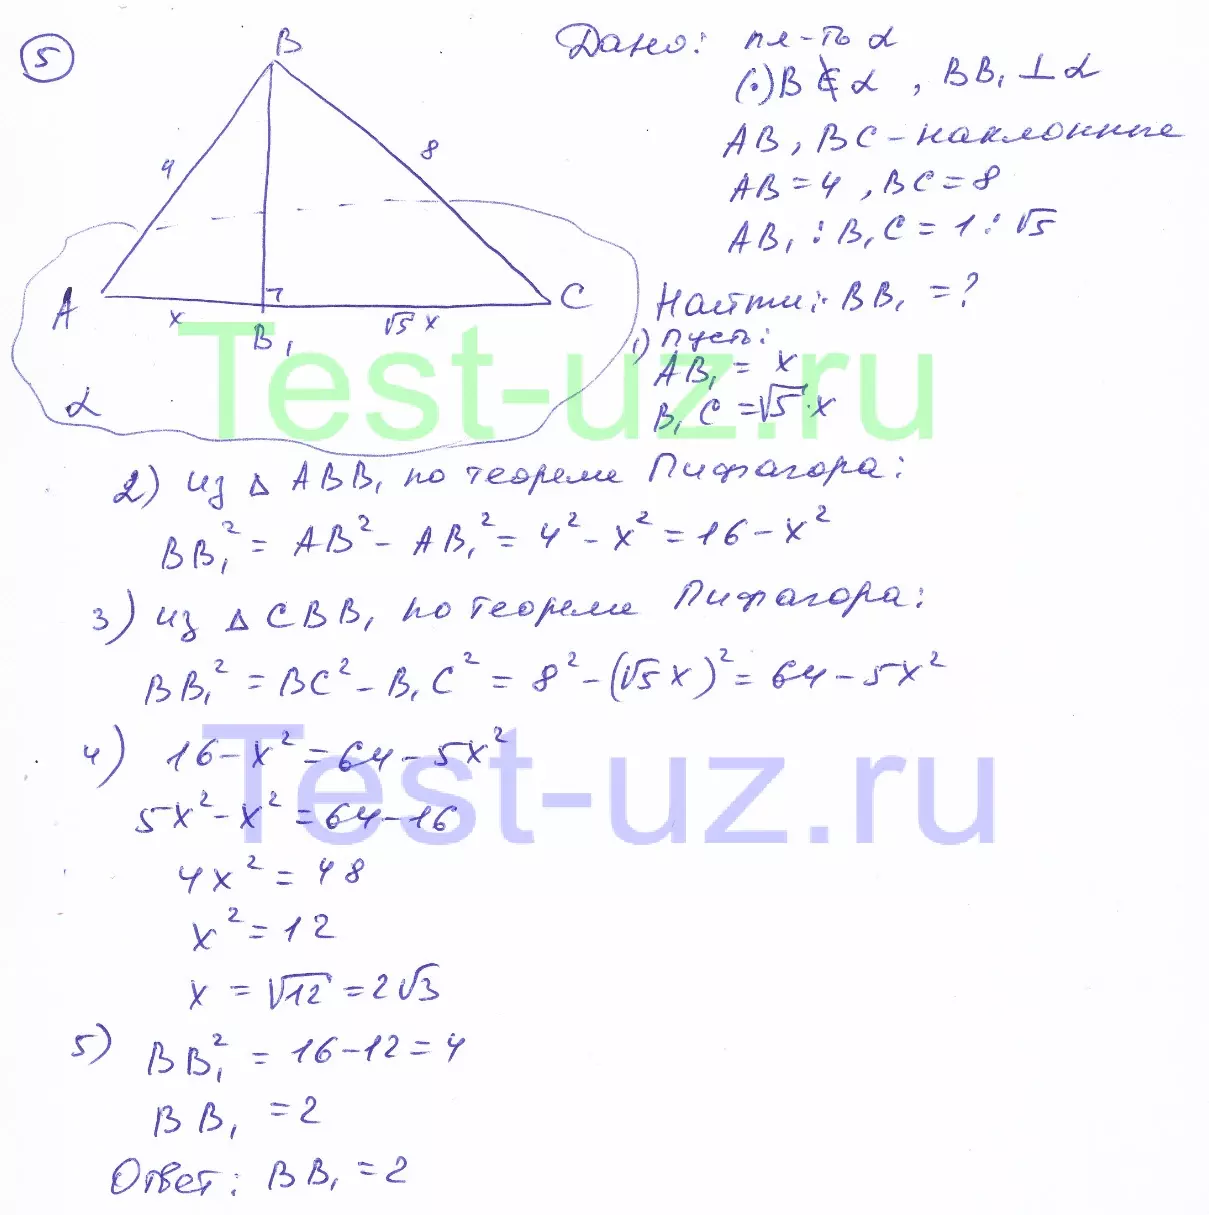 5
B
Дано: пл-ть α
(·)B ∉ α , BB₁ ⊥ α
AB, BC - наклонные
AB = 4 , BC = 8
AB₁ : B₁C = 1 : √5
4
8
A
C
x
√5 x
B₁
α
Найти: BB₁ = ?
1) Пусть:
AB₁ = x
B₁C = √5·x
Test-uz.ru
2) из Δ ABB₁ по теореме Пифагора:
BB₁² = AB² - AB₁² = 4² - x² = 16 - x²
3) из Δ CBB₁ по теореме Пифагора:
BB₁² = BC² - B₁C² = 8² - (√5x)² = 64 - 5x²
4) 16 - x² = 64 - 5x²
Test-uz.ru
5x² - x² = 64 - 16
4x² = 48
x² = 12
x = √12 = 2√3
5) BB₁² = 16 - 12 = 4
BB₁ = 2
Ответ: BB₁ = 2